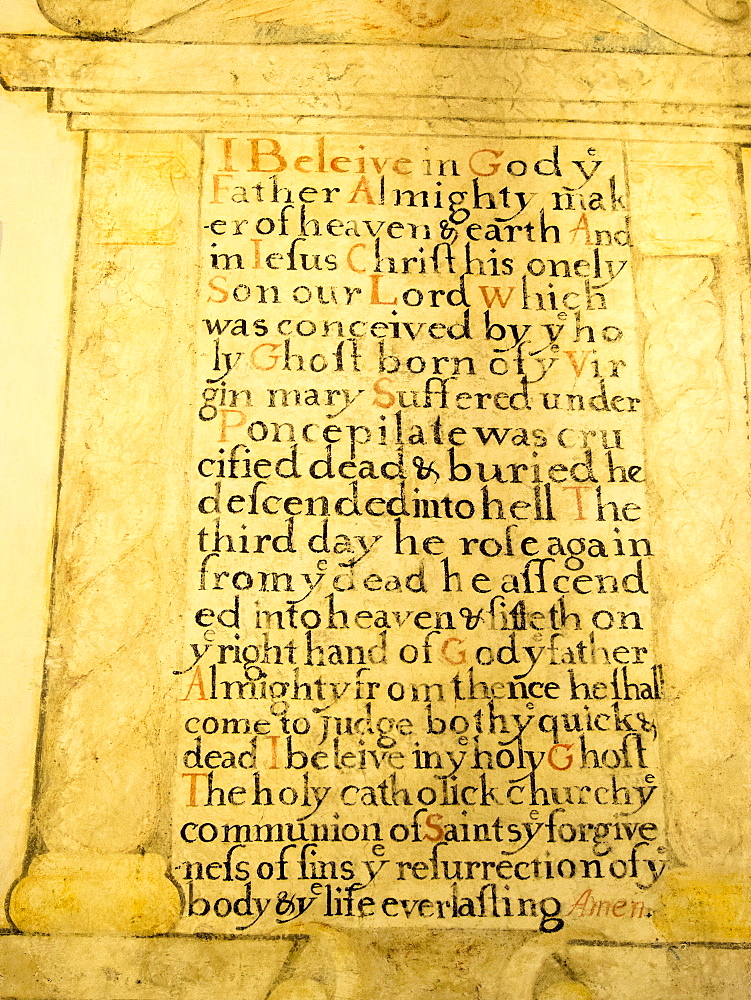 I Beleive in God yͤ
Father Almighty mak
-er of heaven & earth And
in Iesus Chriſt his onely
Son our Lord Which
was conceived by yͤ ho
ly Ghoſt born of yͤ Vir
gin mary Suffered under
Ponce pilate was cru
cified dead & buried he
deſcended into hell The
third day he roſe again
from yͤ dead he aſſcend
ed into heaven & ſitteth on
yͤ right hand of God yͤ father
Almighty from thence he ſhall
come to judge both yͤ quick &
dead I beleive in yͤ holy Ghoſt
The holy catholick church yͤ
communion of Saints yͤ forgive
neſs of ſins yͤ reſurrection of yͤ
body & yͤ life everlaſting Amen.